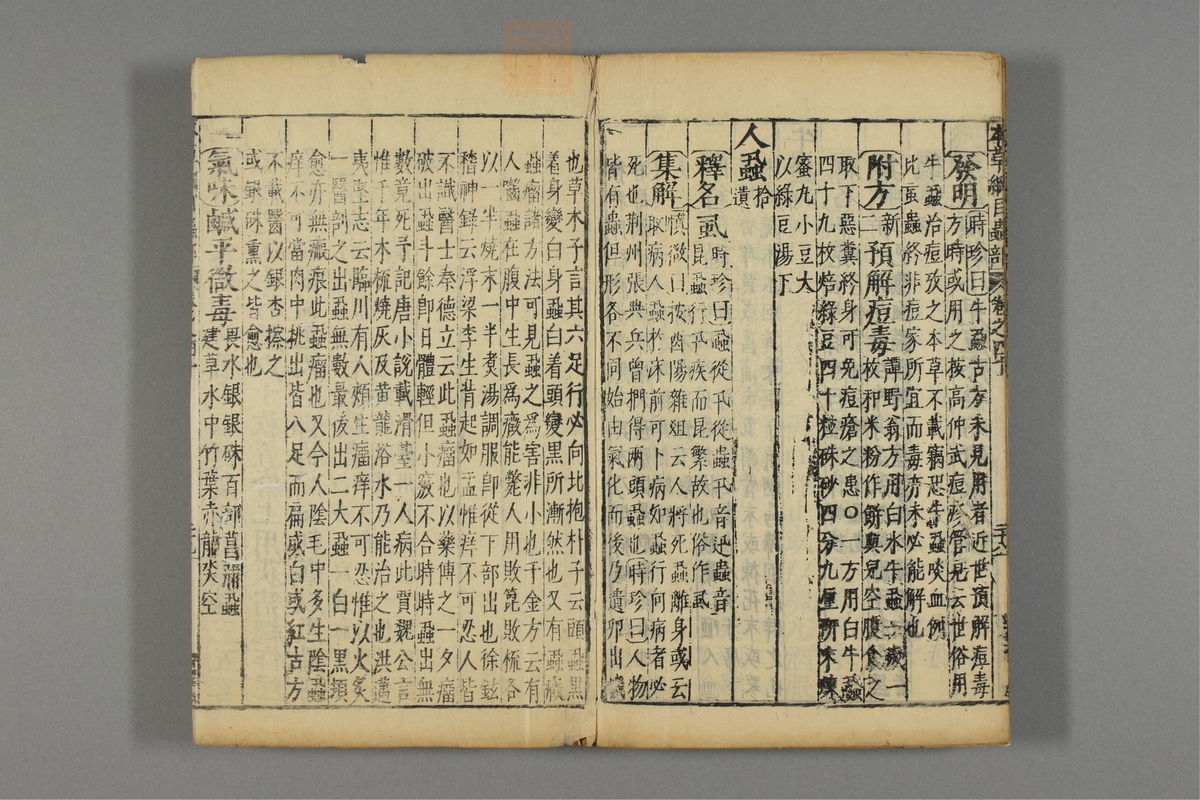 本草綱目蟲部 卷之四十
發明時珍曰牛蝨古方未見用者近世預解痘毒
方時或用之按高仲武痘疹管見云世俗用
牛蝨治痘攷之本草不載竊恐牛蝨啖血例
比䖟蟲終非痘家所宜而毒亦未必能解也
附方新二預解痘毒譚野翁方用白水牛蝨一歲一
枚和米粉作餅與兒空腹食之
取下惡糞終身可免痘瘡之患○一方用白牛蝨
四十九枚焙綠豆四十九粒硃砂四分九厘研末煉
蜜丸小豆大
以綠豆湯下
人蝨拾遺
釋名虱時珍曰蝨從卂從䖵卂音迅䖵音
昆蝨行迅疾而昆繁故也俗作虱
集解慎微曰按酉陽雜俎云人將死蝨離身或云
取病人蝨於床前可卜病如蝨行向病者必
死也荆州張典兵曾捫得兩頭蝨也時珍曰人物
皆有蟲但形各不同始由氣化而後乃遺卵出蟣
也草木子言其六足行必向北抱朴子云頭蝨黑
着身變白身蝨白着頭變黑所漸然也又有蟣
蝨瘤諸方法可見蝨之為害非小也千金方云有
人囓蝨在腹中生長為癥能斃人用敗篦敗梳各
以一半燒末一半煑湯調服卽從下部出也徐鉉
稽神錄云浮梁李生背起如盂惟痒不可忍人皆
不識醫士秦德立云此蝨瘤也以藥傅之一夕瘤
破出蝨斗餘卽日體輕但小竅不合時時蝨出無
數竟死予記唐小說載滑臺一人病此賈魏公言
惟千年木梳燒灰及黄龍浴水乃能治之也洪邁
夷堅志云臨川有人頰生瘤痒不可忍惟以火炙
一醫剖之出蝨無數最後出二大蝨一白一黑頓
愈亦無瘢痕此蝨瘤也又今人陰毛中多生陰蝨
痒不可當肉中挑出皆八足而扁或白或紅古方
不載醫以銀杏擦之
或銀硃熏之皆愈也
氣味鹹平微毒畏水銀銀硃百部菖蒲蝨
建草水中竹葉赤龍水空